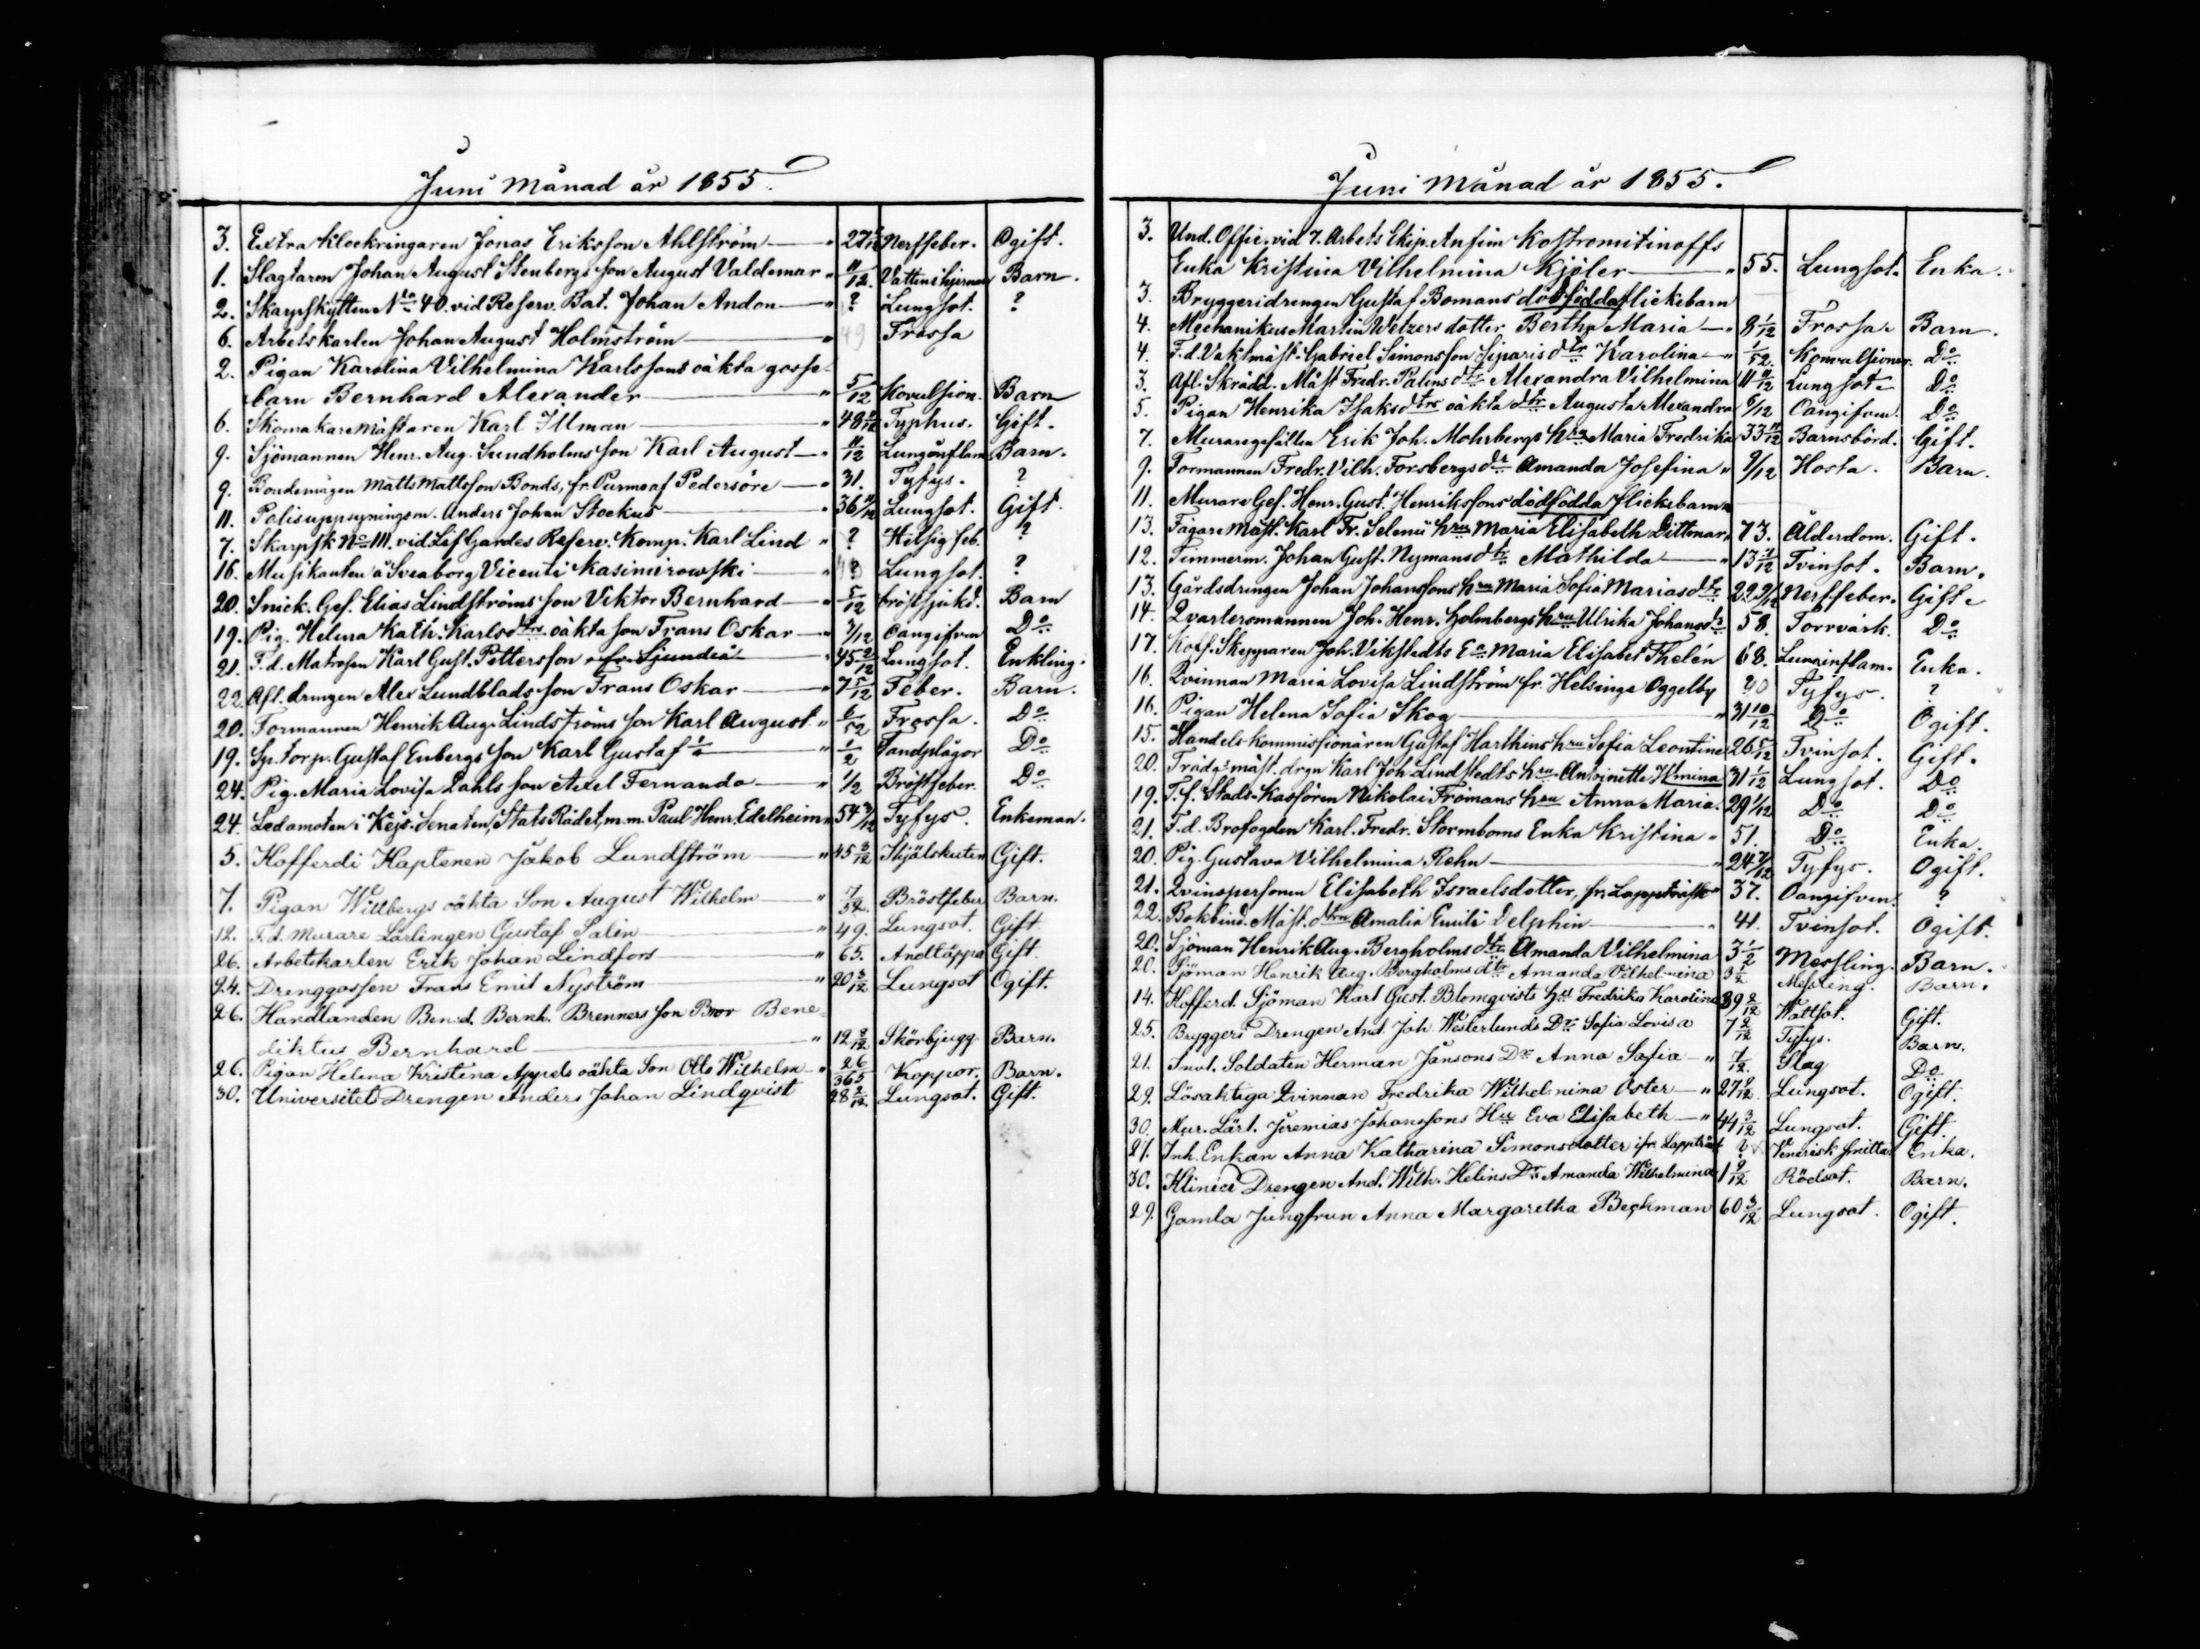 Juni Månad år 1855.
3. Extra Klockringaren Jonas Eriksson Ahlström — " 27 Nerffeber. Ogift.
1. Slagtaren Johan August Stenbergs son August Valdemar " 11/12. Vatten i hjernan Barn.
2. Skarpskytten No 40. vid Reserv. Bat. Johan Andon — " ? Lungsot. ?
6. Arbetskarlen Johan August Holmström — " 49 Frossa
2. Pigan Karolina Vilhelmina Karlssons oäkta gosse-
barn Bernhard Alexander — " 5/12 Kovulsion. Barn
6. Skomakaremästaren Karl Illman — " 48 Typhus. Gift.
9. Sjömannen Henr. Aug. Sundholms son Karl August — " 11/12 Lunginflam. Barn.
9. Bondemågen Matts Mattsson Bonds, fr. Purmo af Pedersöre — " 31. Tyfys. ?
11. Polisuppsyningsm. Anders Johan Stockus — " 36 11/12 Lungsot. Gift
7. Skarpsk No 111. vid Lif Gardes Reserv. Komp. Karl Lind " ? Hitsig feb. ?
16. Musikanten å Sveaborg Vicenti Kasimirowski — " Lungsot. ?
20. Snick. Ges. Elias Lindströms son Viktor Bernhard — " 5/12 bröstsjukd. Barn
19. Pig. Helena Kath. Karlsdtrs oäkta son Frans Oskar — " 3/12 Oangifven Do
21. F. d. Matrosen Karl Gust. Pettersson fr. Sjundeå " 45 2/12 Lungsot. Enkling.
22. Aft. drengen Alex Lundblads son Frans Oskar — " 7 5/12 Feber. Barn.
20. Formannen Henrik Aug. Lindströms son Karl August " 6/52 Frossa. Do
19. Sp. torp. Gustaf Enbergs son Karl Gustaf — " 1/2 Tandplågor Do
24. Pig. Maria Lovisa Dahls son Axel Fernando — " 1/2 Bröstfeber. Do
24. Ledamoten i Kejs. Senaten, Stats Rådet, m.m. Paul Henr. Edelheim " 54 3/12 Tyfys. Enkeman.
5. Kofferdi Kaptenen Jakob Lundström — " 45 3/12 Ihjälskuten Gift.
7. Pigan Willbergs oäkta Son August Wilhelm — " 7/52. Bröstfeber Barn.
12. F. d. Murare Lärlingen Gustaf Salin — " 49. Lungsot. Gift.
26. Arbetskarlen Erik Johan Lindfors — " 65. Andtäppa Gift.
24. Drenggossen Frans Emil Nyström — " 20 3/12 Lungsot Ogift.
26. Handlanden Bened. Bernh. Brenners son Bror Bene-
diktus Bernhard — " 12 2/12 Skörbjugg. Barn.
26. Pigan Helena Kristina Appels oäkta Son Otto Wilhelm — " 26/365 Koppor. Barn.
30. Universitets Drengen Anders Johan Lindqvist 28 2/12 Lungsot. Gift.
Juni Månad år 1855.
3. Und. Offic. vid 7. Arbets Ekip. Anfim Kostromitinoffs
Enka Kristina Vilhelmina Kjöler — " 55. Lungsot. Enka.
3. Bryggeridrengen Gustaf Bomans dödfödda flickebarn
4. Mechanikus Martin Welzers dotter Bertha Maria — " 8 1/12 Frossa. Barn.
4. F. d. Vaktmäst. Gabriel Simonsson Siparis dtr Karolina — " 1/52. Konvulsioner. Do
3. Afl. Skrädd. Mäst Fredr. Palins dtr Alexandra Vilhelmina 11 11/12 Lungsot. Do
5. Pigan Henrika Isaksdtrs oäkta dtr Augusta Alexandra 6/12 Oangifven. Do
7. Muraregesällen Erik Joh. Mohrbergs hru Maria Fredrika 33 11/12 Barnsbörd. Gift.
9. Formannen Fredr. Vilh. Forsbergs dr Amanda Josefina " 9/12 Hosta. Barn.
11. Murare Ges. Henr. Gust. Henrikssons dödfödda flickebarn
13. Fägare Mäst. Karl Fr. Selenii hru Maria Elisabeth Dittmar " 73. Ålderdom. Gift.
12. Timmerm. Johan Gust. Nymans dtr Mathilda — " 13 1/12 Tvinsot. Barn.
13. Gårdsdrengen Johan Johanssons hru Maria Sofia Mariasdtr 22 9/12 Nerffeber. Gift.
14. Qvartersmannen Joh. Henr. Holmbergs hru Ulrika Johansdtr 58. Torrvärk. Do
17. Koff. Skepparen Joh. Vikstedts Ea Maria Elisabet Thelén 68. Lunginflam. Enka.
16. Qvinnan Maria Lovisa Lindström fr. Helsinge Oggelby 40 Tyfys. ?
16. Pigan Helena Sofia Skog — " 31 10/12 Do Ogift.
15. Handelskommissionären Gustaf Harthins hru Sofia Leontine 26 5/12 Tvinsot. Gift.
20. Trädgs mäst. drgn Karl Joh Lindstedts hru Antoinette Wmina 31 1/12 Lungsot. Do
19. T. f. Stads-Kassören Nikolai Fromans hru Anna Maria. 29 1/12 Do Do
21. F. d. Brofogden Karl. Fredr. Stormboms Enka Kristina " 51. Do Enka.
20. Pig. Gustava Vilhelmina Rehn — " 24 7/12 Tyfys. Ogift.
21. Qvinspersonen Elisabeth Israelsdotter, fr. Lappträsk " 37. Oangifven. ?
22. Bokbind. Mäst. dtrn Amalia Emili Delphin — " 41. Tvinsot. Ogift.
20. Sjöman Henrik Aug. Bergholms dtr Amanda Vilhelmina 3 1/2 Messling. Barn.
20. Sjöman Henrik Aug. Bergholms dtr Amanda Vilhelmina 3 1/2 Messling. Barn.
14. Kofferd. Sjöman Karl Gust. Blomqvists Hu Fredrika Karolina 39 2/12 Wattsot. Gift.
25. Bryggeri Drengen And. Joh. Westerlunds Dr Sofia Lovisa 7 2/12 Tyfys. Barn.
21. Invl. Soldaten Herman Jansons Dr Anna Sofia — " 7/12 Slag Do
29. Lösaktiga Qvinnan Fredrika Wilhelmina Öster — " 27 9/12 Lungsot. Ogift.
30. Mur. Lärl. Jeremias Johanssons Hu Eva Elisabeth — " 44 3/12 Lungsot. Gift.
27. Inh. Enkan Anna Katharina Simonsdotter ifr. Lappträsk ? Venerisk smitta. Enka.
30. Klinici Drengen And. Wilh. Helins Dr Amanda Wilhelmina 1 9/12 Rödsot. Barn.
29. Gamla Jungfrun Anna Margaretha Beckman 60 3/12 Lungsot. Ogift.